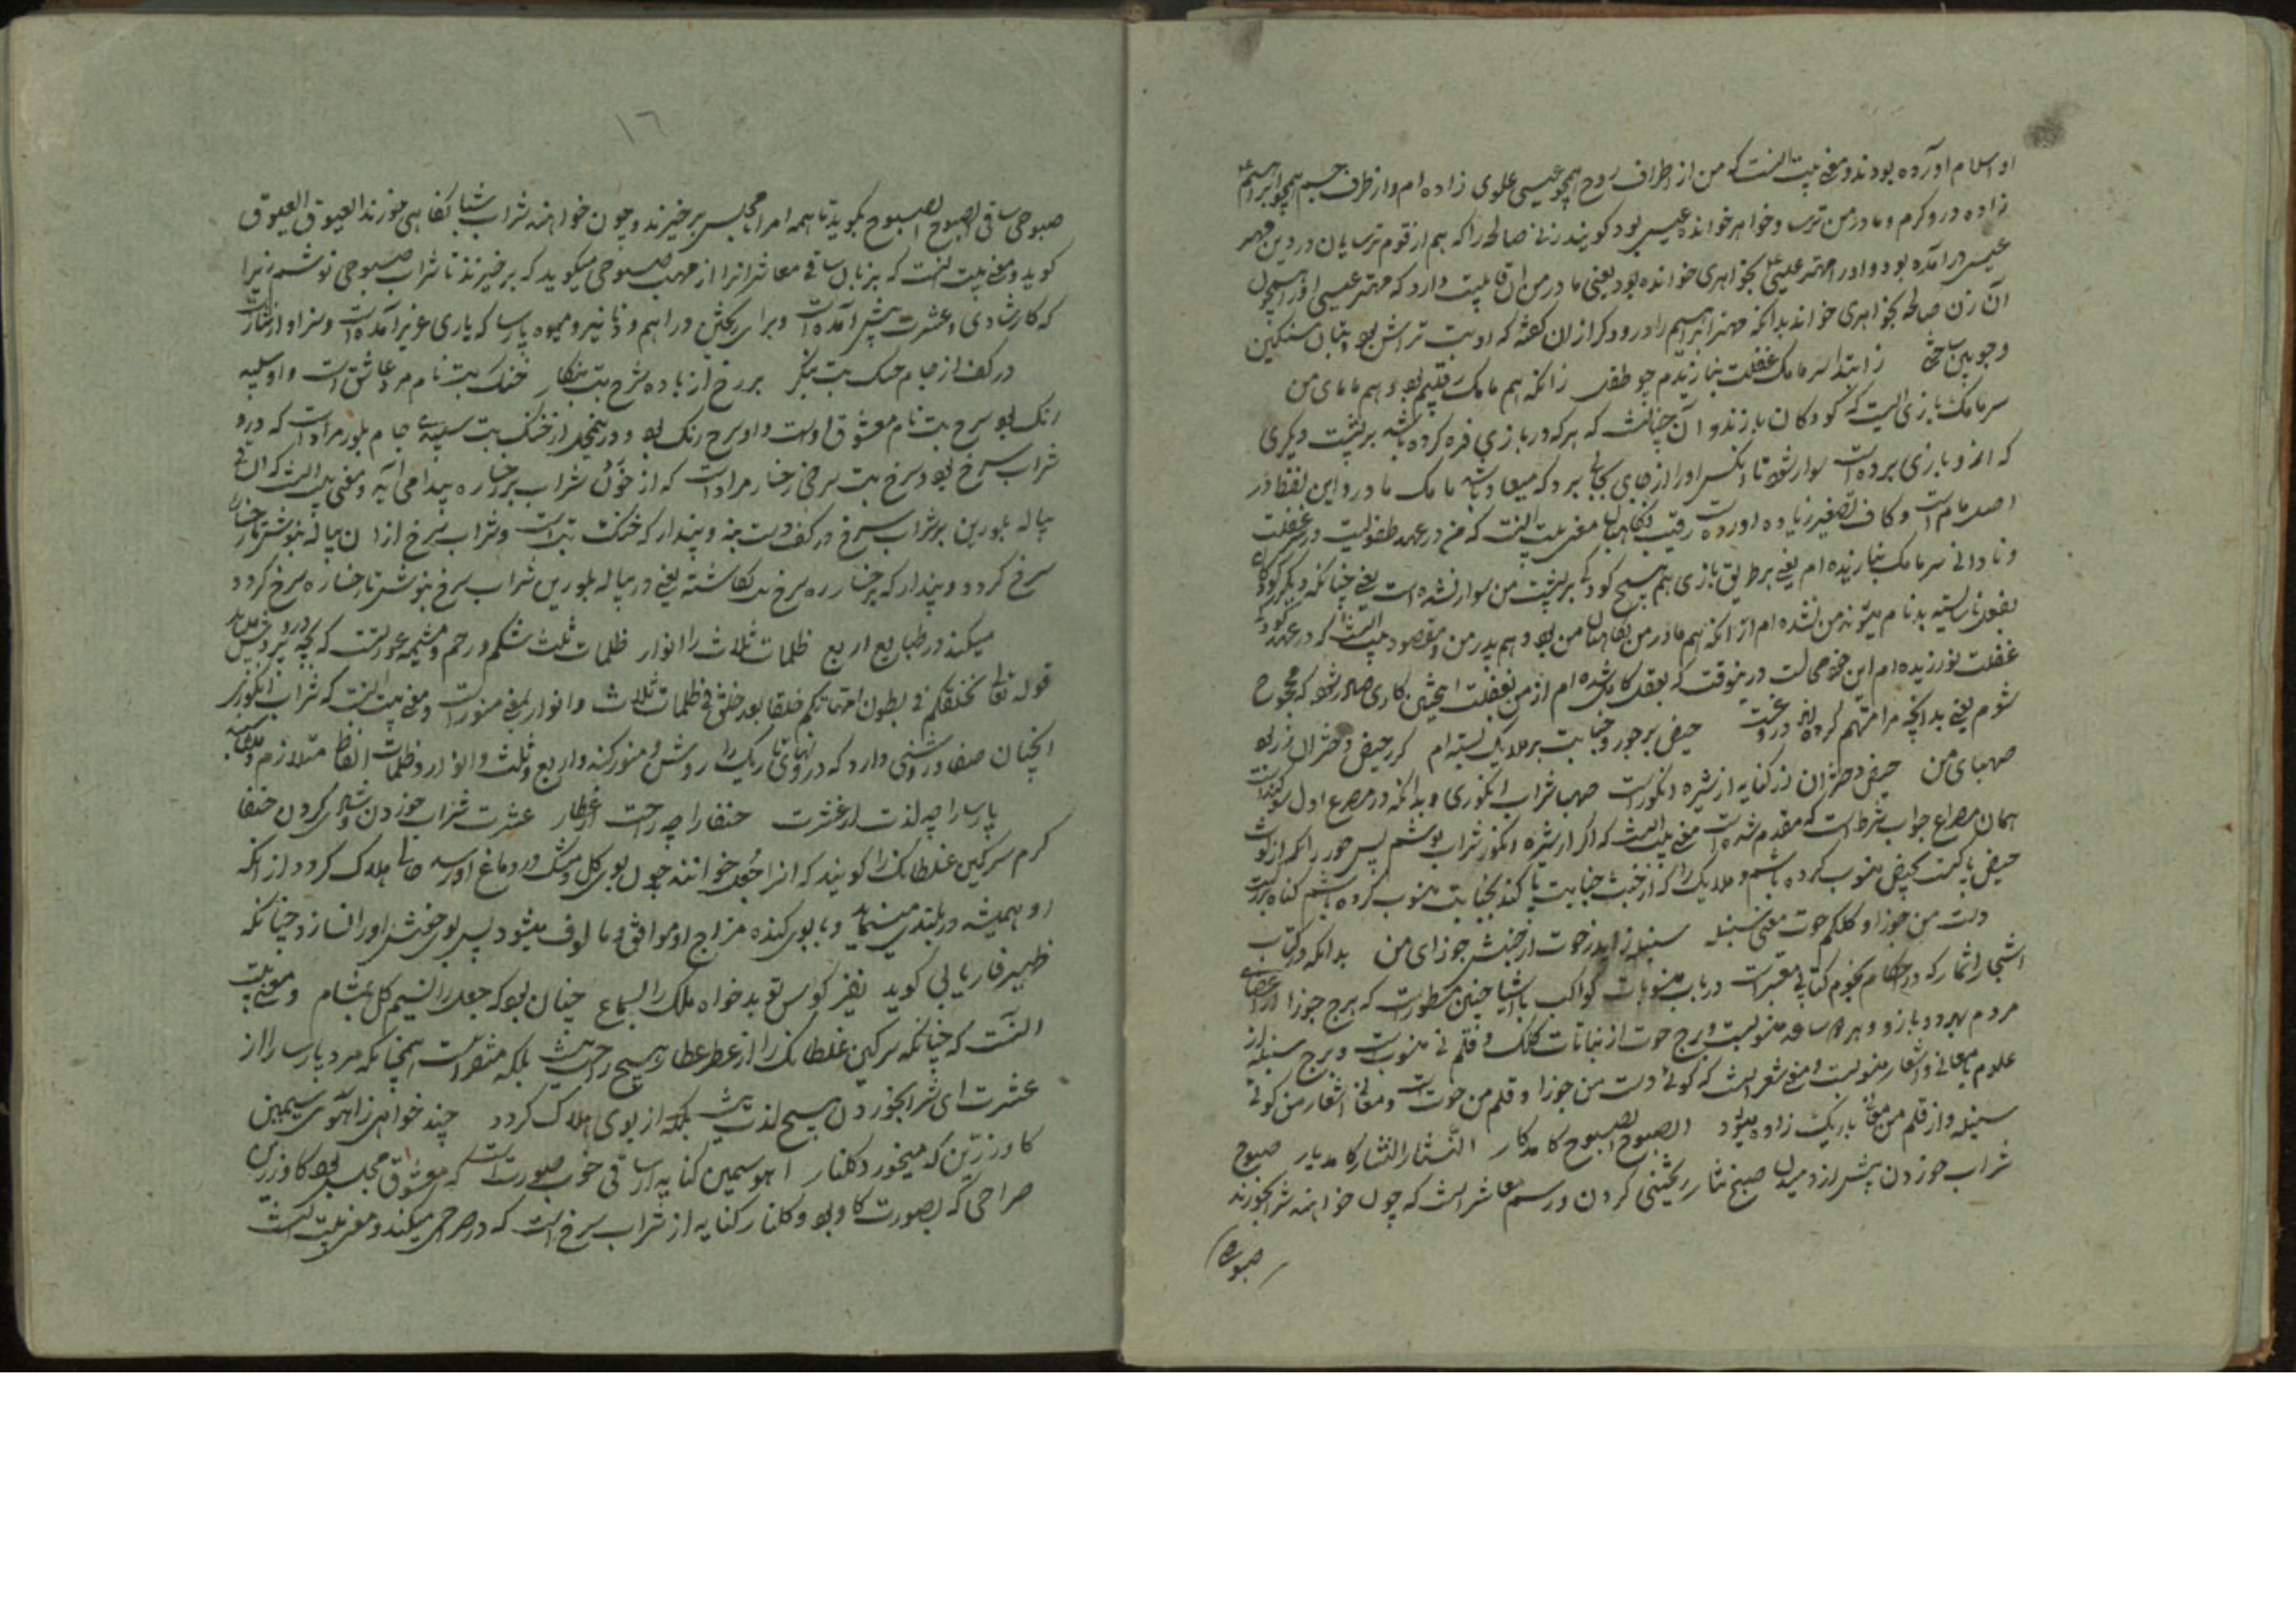 او سلام اورده بودند و معنی بیت انست که من از اطراف روح همچو عیسی علوی زاده ام و از طرف جسم همچو ابراهیم
زاده درودکرم و مادر من ترسا و خواهر خوانده عیسی بود کویند زنی صالحه را که هم از قوم ترسایان در دین مهتر
عیسی درآمده بود و او را مهتر عیسی بخواهری خوانده بود یعنی مادر من ان قابلیت دارد که مهتر عیسی او را همچون
آن زن صالحه بخواهری خواند بدانکه مهتر ابراهیم را درودکر از ان کفته که او بت تراش بود و بتان سنکین
و چوبین ساختی ز ابتدا سرمامک غفلت نبازیدم چو طفل زانکه هم مامک رقیبم بود و هم مامای من
سرمامک بازی ایست که کودکان بازند و آن چنانست که هر که در بازی فره کرده باشد بر پشت دیکری
که ازو بازی برده است سوار شود تا انکس او را از جای بجایی برد که میعاد باشد مامک مادر و این لفظ در
اصل مام است و کاف تصغیر زیاده اورده است رقیب نکاهبان معنی بیت انست که من در عهد طفولیت در غفلت
و نادانی سرمامک نبازیده ام یعنی بر طریق بازی هم هیچ کودکی بر پشت من سوار نشده است یعنی چنانکه دیکر کودکان
بفعل ناشایسته بدنام میشوند من نشده ام از انکه هم مادر من نکاهبان من بود و هم پدر من و مقصود بیت انست که در عهد کودکی
غفلت نورزیده ام این خود محالست درینوقت که بعقل کامل شده ام از من بغفلت اینچنین کاری صادر شود که مجروح
شوم یعنی بدانچه مرا متهم کرده اند دروغست حیض بر حور و جنابت بر ملایک بسته ام کر ز حیض دختران رز بود
صهبای من حیض دختران رز کنایه از شیره انکور است صهبا شراب انکوری و بدانکه در مصرع اول سوکند است
همان مصراع جواب شرط است که مقدم شده است معنی بیت انست که اکر از شیره انکور شراب نوشم پس حور را که از لوث
حیض پاکست بحیض منسوب کرده باشم و ملایک را که از خبث جنابت پاکند بجنابت منسوب کرده باشم کناه بزرکست
دست من جوزا و کلکم حوت معنی سنبله سنبله زاید ز حوت از جنبش جوزای من بدانکه در کتاب
اشجار اثمار که در احکام نجوم کتابی معتبرست در باب منسوبات کواکب باشیا چنین مسطورست که برج جوزا از اعضای
مردم بهر دو بازو و بهر دو ساعد منسوبست و برج حوت از نباتات کلک و قلم نی منسوبست و برج سنبله از
علوم بمعانی و اشعار منسوبست و معنی شعر انست که کوئی دست من جوزا و قلم من حوت است و معانی اشعار من کوئی
سنبله و از قلم من معانی باریک زاده میشود الصبوح الصبوح کامد کار النثار النثار کامد یار صبوح
شراب خوردن پیش از دمیدن صبح نثار ریختنی کردن و رسم معاشرانست که چون خواهند شراب خورند
صبوحی
١٦
صبوحی ساقی الصبوح الصبوح بکوید تا همه امرا مجلس برخیزند و چون خواهند شراب شبانکاهی خورند العیوق العیوق
کوید و معنی بیت انست که بزبان ساقی معاشرانرا از جهت صبوحی میکوید که برخیزند تا شراب صبوحی نوشیم زیرا
که کار شادی و عشرت پیش آمده است و برای ریختن دراهم و دنانیر و میوه پارسا که یاری عزیز آمده است و سزاوار نثار است
در کف از جام خنک بت بنکر بر رخ از باده سرخ بت بنکار خنک بت نام مرد عاشق است و او سپید
رنک بود سرخ بت نام معشوق اوست و او سرخ رنک بود و درینمحل از خنک بت سپیدی جام بلور مراد است که درو
شراب سرخ بود و سرخ بت سرخی رخسار مراد است که از خون شراب بر رخساره پیدا می آید و معنی بیت انست که ای
پیاله بلورین پر شراب سرخ در کف دست بنه و پندار که خنک بت است و شراب سرخ از ان پیاله بنوش تا رخسار
سرخ کردد و پندار که بر رخساره سرخ بت نکاشته یعنی در پیاله بلورین شراب سرخ بنوش تا رخساره سرخ کردد
میکند در طبایع اربع ظلمات ثلاث را انوار ظلمات ثلث شکم و رحم و مشیمه عورتست که بچه درو پرورش یابد
قوله تعالی یخلقکم فی بطون امهاتکم خلقا بعد خلق فی ظلمات ثلاث و انوار بمعنی منور است و معنی بیت انست که شراب انکور
انچنان صفا و روشنی دارد که درونهای تاریک را روشن و منور کند و اربع و ثلث و انوار و ظلمات الفاظ متلازم
پارسا را چه لذت از عشرت خنفسا را چه راحت از عطار عشرت شراب خوردن و شادی کردن خنفسا
کرم سرکین غلطانک را کویند که انرا جعل خوانند چون بوی کل و مشک در دماغ او رسد حالی هلاک کردد از انکه
او همیشه در پلیدی میباشد و با بوی کنده مزاج او موافق و مالوف میشود پس بوی خوش او را نسازد چنانکه
ظهیر فاریابی کوید نفیر کوس تو بدخواه ملک را بسماع چنان بود که جعل را نسیم کل بمشام و معنی بیت
انست که چنانکه سرکین غلطانک را از عطر عطار هیچ راحت نیست بلکه متضرر است همچنانکه مرد پارسا را از
عشرت ای شراب خوردن هیچ لذت نیست بلکه از بوی هلاک کردد چند خواهی ز آهوی سیمین
کاو زرین که میخورد کلنار اهو سیمین کنایه از ساقی خوب صورت است که معشوق مجلس بود کاو زرین
صراحی که بصورت کاو بود و کلنار کنایه از شراب سرخ است که در صراحی میکند و معنی بیت انست